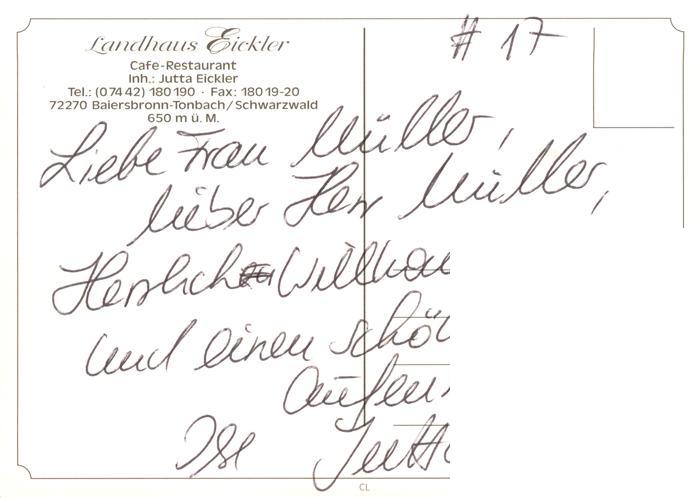 Landhaus Eickler
Cafe-Restaurant
Inh.: Jutta Eickler
Tel.: (0 74 42) 180 190 · Fax: 180 19-20
72270 Baiersbronn-Tonbach/Schwarzwald
650 m ü. M.
# 17
Liebe Frau Müller,
lieber Herr Müller,
Herzlich
und einen
CL